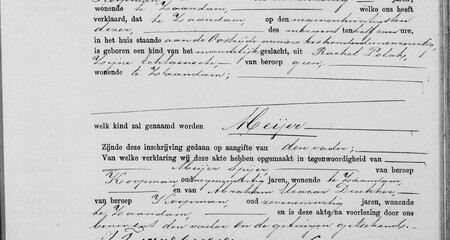 wonende te Zaandam, welke ons heeft
verklaard, dat te Zaandam, op den negenentwintigsten
dezer, des morgens ten half zes ure,
in het huis staande aan de Oostzijde nummer
is geboren een kind van het mannelijk geslacht, uit Rachel Polak,
Zijne Echtgenoote van beroep geen,
wonende te Zaandam;
welk kind zal genaamd worden Meijer
Zijnde deze inschrijving gedaan op aangifte van den vader;
Van welke verklaring wij deze akte hebben opgemaakt in tegenwoordigheid van
Meijer Speijer van beroep
Koopman oud jaren, wonende te Zaandam,
en van Abraham Drukker,
van beroep Koopman oud zesenveertig jaren, wonende
te Zaandam, en is deze akte, na voorlezing door ons
den vader en de getuigen geteekend.